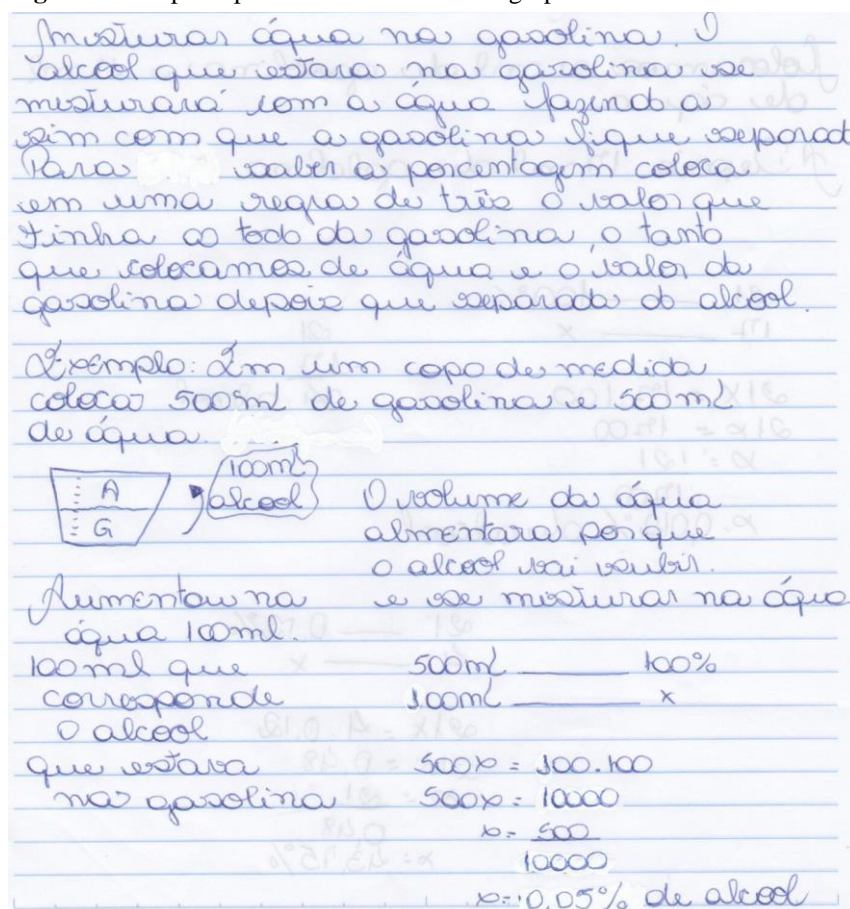 Misturar água na gasolina. O
alcool que estara na gasolina se
misturará com a água fazendo a
sim com que a gasolina fique separad
Para saber a porcentagem coloca
em uma regra de três o valor que
tinha ao todo da gasolina, o tanto
que colocamos de água e o valor da
gasolina depois que separada do alcool.
Exemplo: Em um copo de medida
colocar 500ml de gasolina e 500ml
de água.
100ml
alcool
A
G
O volume da água
almentara por que
o alcool vai subir.
e se misturar na água
Aumentou na
água 100ml.
100ml que
corresponde
O alcool
que estava
na gasolina
500ml ___ 100%
100ml ___ x
500x = 100.100
500x = 10000
x = 500
10000
x = 0,05% de alcool